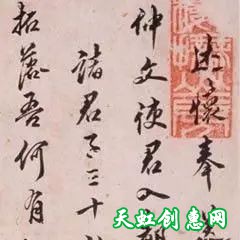 懷奉
仲文使君入
諸君子三十
拓落吾何有
天虹创惠网